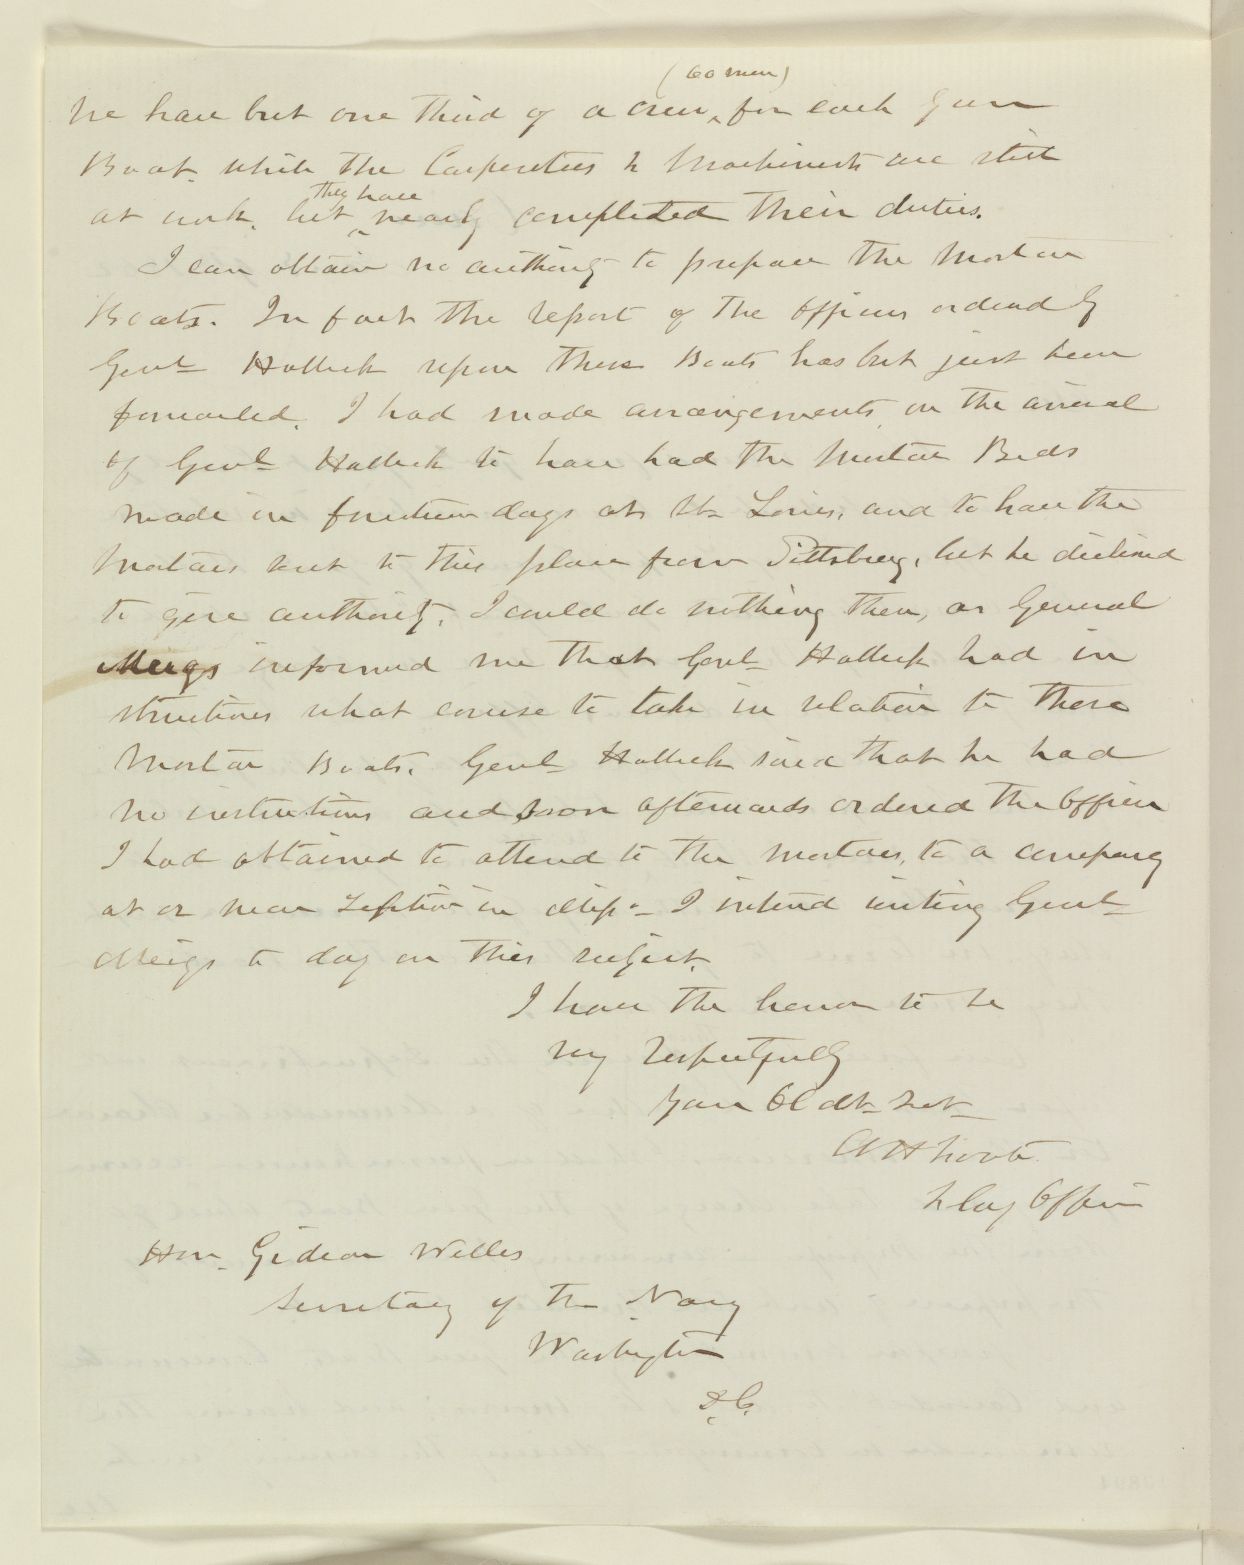 (60 men)
We have but one third of a crew, for each Gun
Boat, while the Carpenters & Machinists are still
they have
at work, but nearly completed their duties.
I can obtain no authority to prepare the Mortar
Boats. In fact the report of the Officers ordered by
Genl Halleck upon these Boats has but just been
forwarded. I had made arrangements, on the arrival
of Genl Halleck to have had the Mortar Beds
made in fourteen days at St Louis, and to have the
Mortars sent to this place from Pittsburg, but he declined
to give authority. I could do nothing then, as General
Meigs informed me that Genl Halleck had in
structions what course to take in relation to these
Mortar Boats. Genl Halleck said that he had
no instructions and soon afterwards ordered the Officer
I had obtained to attend to the mortars, to a company
at or near in I intend writing Genl
Meigs to day on this subject.
I have the honor to be
very respectfully
Your Obdt Sevt
A H Foote
Flag Officer
Hon. Gideon Welles
Secretary of the Navy
Washington
D.C.